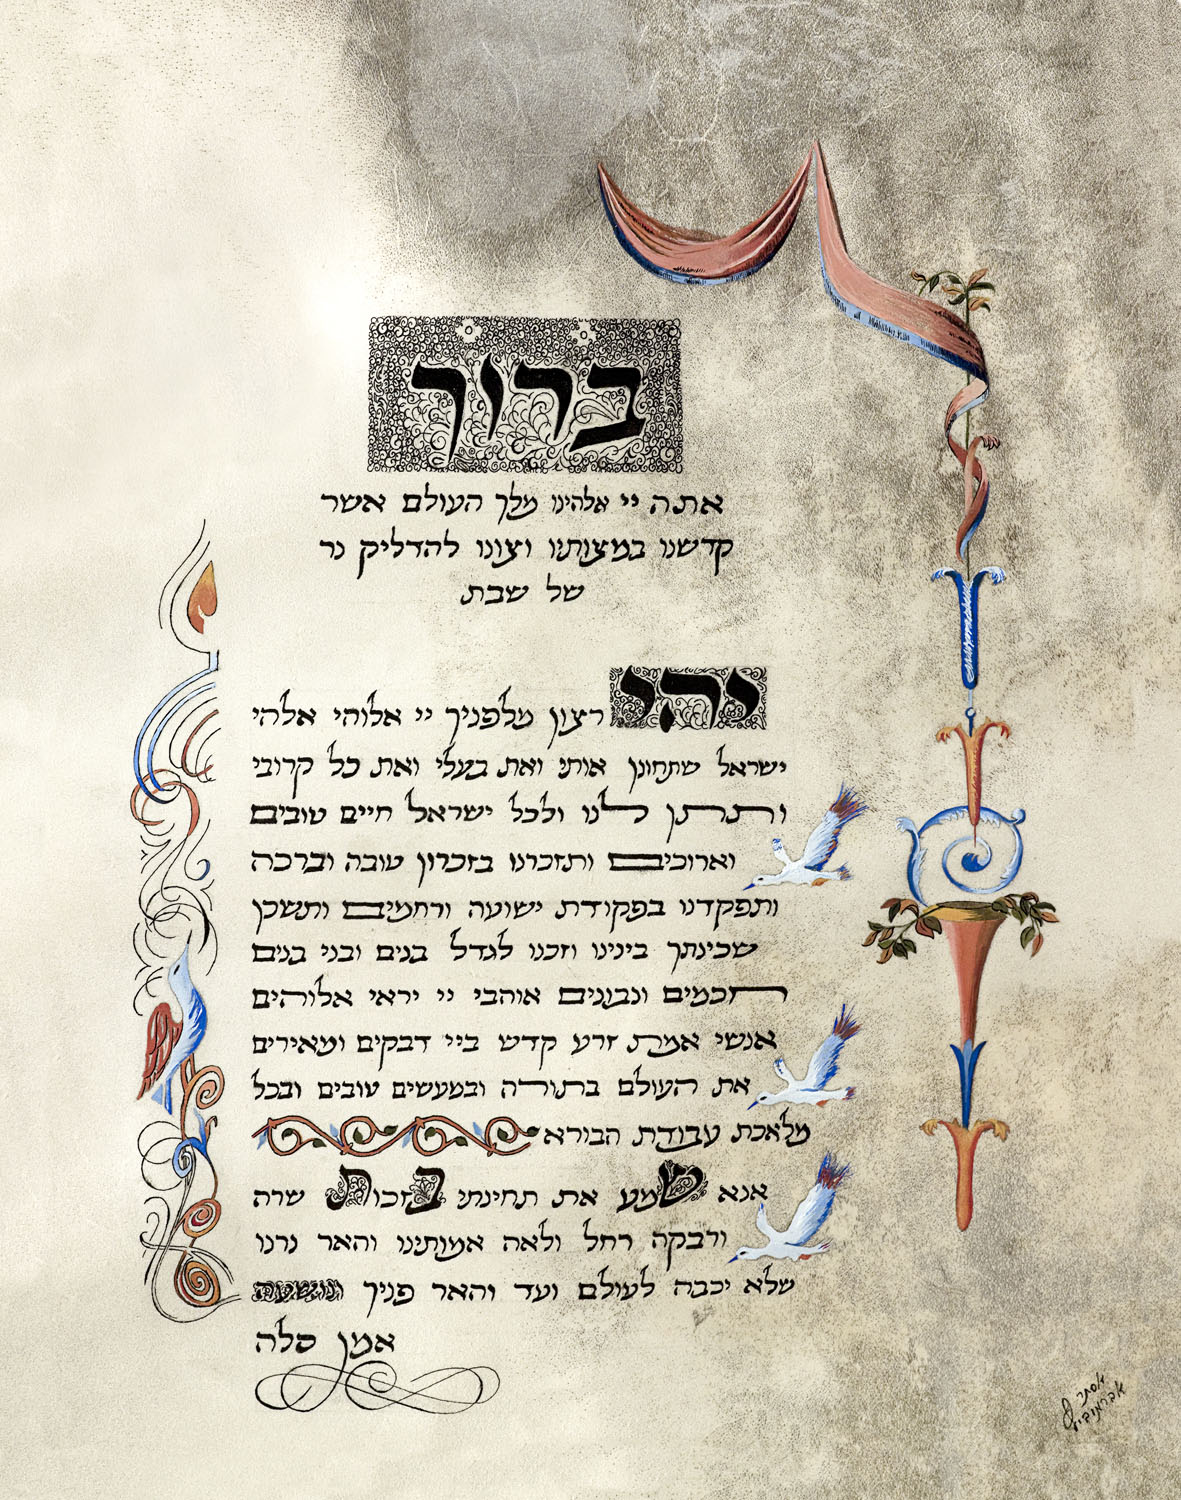 ברוך
אתה יי אלהינו מלך העולם אשר
קדשנו במצותיו וצונו להדליק נר
של שבת
יהי רצון מלפניך יי אלוהי אלהי
ישראל שתחונן אותי ואת בעלי ואת כל קרובי
ותתן לנו ולכל ישראל חיים טובים
וארוכים ותזכרנו בזכרון טובה וברכה
ותפקדנו בפקודת ישועה ורחמים ותשכן
שכינתך בינינו וזכנו לגדל בנים ובני בנים
חכמים ונבונים אוהבי יי יראי אלוהים
אנשי אמת זרע קדש ביי דבקים ומאירים
את העולם בתורה ובמעשים טובים ובכל
מלאכת עבודת הבורא
אנא שמע את תחינתי בזכות שרה
ורבקה רחל ולאה אמותינו והאר נרנו
שלא יכבה לעולם ועד והאר פניך ונושעה
אמן סלה
אסתר
אברמוביץ